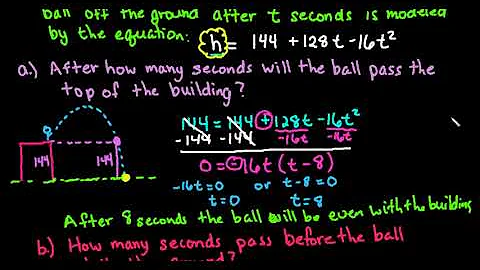 ball off the ground after t seconds is modeled
by the equation: h = 144 + 128t - 16t²
a.) After how many seconds will the ball pass the
top of the building?
144 = 144 + 128t - 16t²
-144 -144 -16t -16t
0 = -16t (t - 8)
144 144
-16t=0 or t-8=0
t=0 t=8
After 8 seconds the ball will be even with the building
b.) How many seconds pass before the ball
the ground?